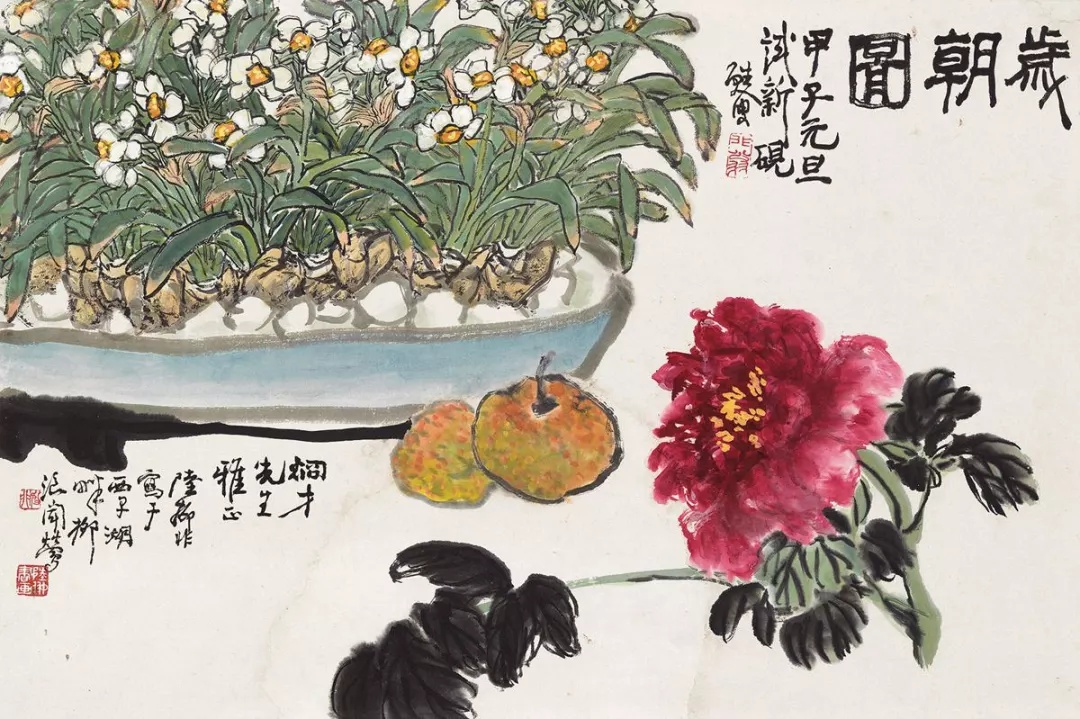 歲朝圖
甲子元旦
試新硯
甦叟
才
先生
雅正
陸抑非
寫于
西子湖
畔柳
浪聞鶯